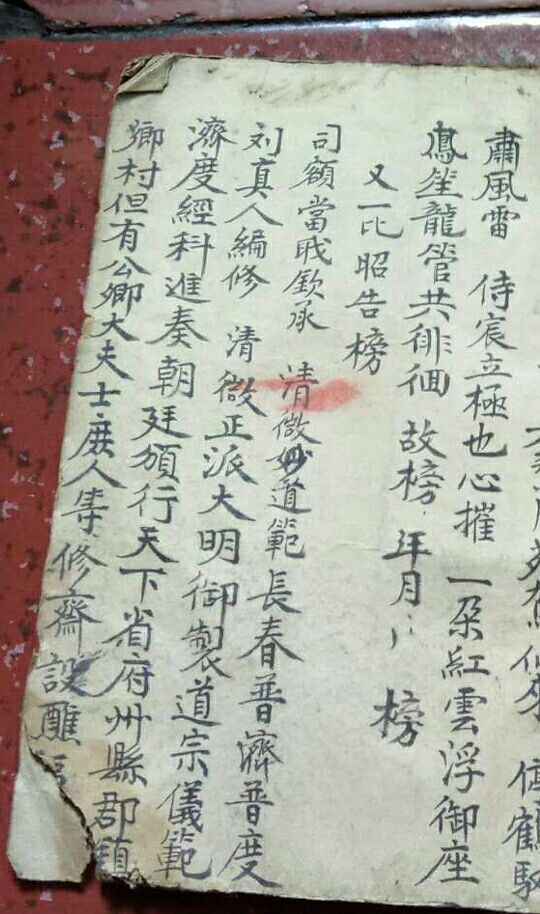 停鶴駕
肅風雷 侍宸立極也心摧 一朵紅雲浮御座
鳳笙龍管共徘徊 故榜 年月 榜
又一比昭告榜
司額當戢欽承 清微妙道範長春普濟普度
刘真人編修 清微正派大明御製道宗儀範
濟度經科進奏朝廷頒行天下省府州縣郡鎮
鄉村但有公卿大夫士庶人等修齋設醮